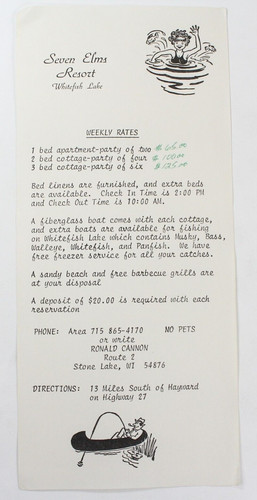 Seven Elms
Resort
Whitefish Lake
WEEKLY RATES
1 bed apartment-party of two
2 bed cottage-party of four
3 bed cottage-party of six
Bed linens are furnished, and extra beds
are available. Check In Time is 2:00 PM
and Check Out Time is 10:00 AM.
A fiberglass boat comes with each cottage,
and extra boats are available for fishing
on Whitefish Lake which contains Musky, Bass,
Walleye, Whitefish, and Panfish. We have
free freezer service for all your catches.
A sandy beach and free barbecue grills are
at your disposal
A deposit of $20.00 is required with each
reservation
PHONE: Area 715 865-4170 NO PETS
or write
RONALD CANNON
Route 2
Stone Lake, WI 54876
DIRECTIONS: 13 Miles South of Hayward
on Highway 27